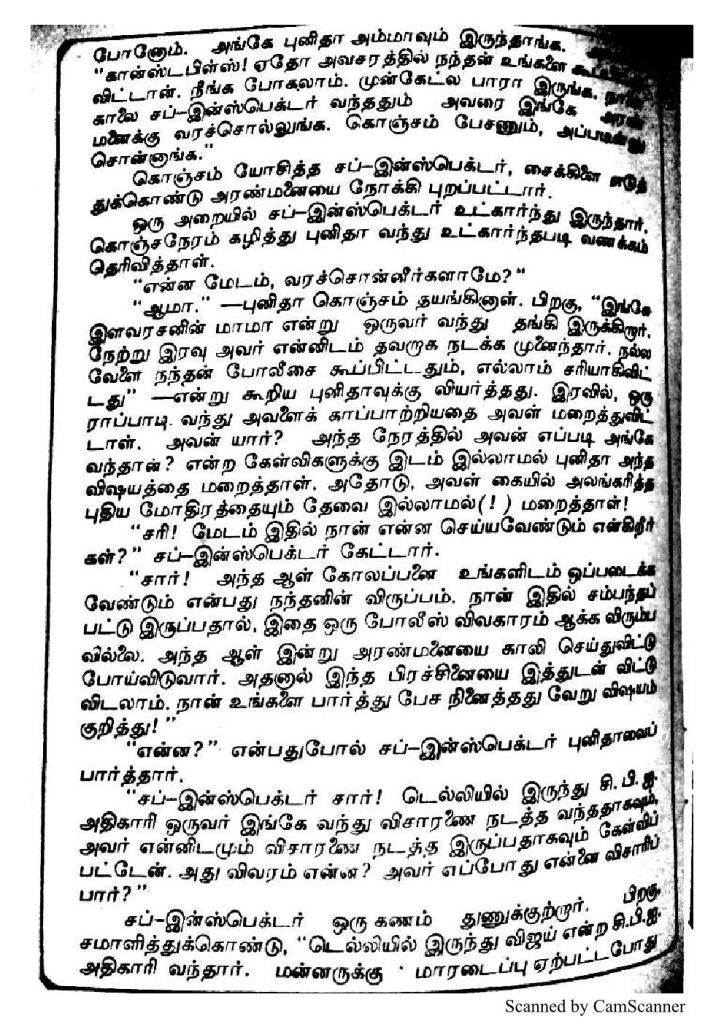 போனோம். அங்கே புனிதா அம்மாவும் இருந்தாங்க.
"கான்ஸ்டபிள்ஸ்! ஏதோ அவசரத்தில் நந்தன் உங்களை
விட்டான். நீங்க போகலாம். முன்கேட்ல பாரா இருங்க.
காலை சப்-இன்ஸ்பெக்டர் வந்ததும் அவரை இங்கே அரண்
மனைக்கு வரச்சொல்லுங்க. கொஞ்சம் பேசணும், அப்படின்னு
சொன்னாங்க."
கொஞ்சம் யோசித்த சப்-இன்ஸ்பெக்டர், சைக்கிளை எடுத்
துக்கொண்டு அரண்மனையை நோக்கி புறப்பட்டார்.
ஒரு அறையில் சப்-இன்ஸ்பெக்டர் உட்கார்ந்து இருந்தார்.
கொஞ்சநேரம் கழித்து புனிதா வந்து உட்கார்ந்தபடி வணக்கம்
தெரிவித்தாள்.
"என்ன மேடம், வரச்சொன்னீர்களாமே?"
"ஆமா." —புனிதா கொஞ்சம் தயங்கினாள். பிறகு, "இங்கே
இளவரசனின் மாமா என்று ஒருவர் வந்து தங்கி இருக்கிறார்.
நேற்று இரவு அவர் என்னிடம் தவறாக நடக்க முனைந்தார். நல்ல
வேளை நந்தன் போலீசை கூப்பிட்டதும், எல்லாம் சரியாகிவிட்
டது" —என்று கூறிய புனிதாவுக்கு வியர்த்தது. இரவில், ஒரு
ராப்பாடி வந்து அவளைக் காப்பாற்றியதை அவள் மறைத்துவிட்
டாள். அவன் யார்? அந்த நேரத்தில் அவன் எப்படி அங்கே
வந்தான்? என்ற கேள்விகளுக்கு இடம் இல்லாமல் புனிதா அந்த
விஷயத்தை மறைத்தாள். அதோடு, அவள் கையில் அலங்கரித்த
புதிய மோதிரத்தையும் தேவை இல்லாமல்(!) மறைத்தாள்!
"சரி! மேடம் இதில் நான் என்ன செய்யவேண்டும் என்கிறீர்
கள்?" சப்-இன்ஸ்பெக்டர் கேட்டார்.
"சார்! அந்த ஆள் கோலப்பனை உங்களிடம் ஒப்படைக்க
வேண்டும் என்பது நந்தனின் விருப்பம். நான் இதில் சம்பந்தப்
பட்டு இருப்பதால், இதை ஒரு போலீஸ் விவகாரம் ஆக்க விரும்ப
வில்லை. அந்த ஆள் இன்று அரண்மனையை காலி செய்துவிட்டு
போய்விடுவார். அதனால் இந்த பிரச்சினையை இத்துடன் விட்டு
விடலாம். நான் உங்களை பார்த்து பேச நினைத்தது வேறு விஷயம்
குறித்து!"
"என்ன?" என்பதுபோல் சப்-இன்ஸ்பெக்டர் புனிதாவைப்
பார்த்தார்.
"சப்-இன்ஸ்பெக்டர் சார்! டெல்லியில் இருந்து சி.பி.ஐ.
அதிகாரி ஒருவர் இங்கே வந்து விசாரணை நடத்த வந்ததாகவும்,
அவர் என்னிடமும் விசாரணை நடத்த இருப்பதாகவும் கேள்விப்
பட்டேன். அது விவரம் என்ன? அவர் எப்போது என்னை விசாரிப்
பார்?"
சப்-இன்ஸ்பெக்டர் ஒரு கணம் துணுக்குற்றார். பிறகு,
சமாளித்துக்கொண்டு, "டெல்லியில் இருந்து விஜய் என்ற சி.பி.ஐ.
அதிகாரி வந்தார். மன்னருக்கு மாரடைப்பு ஏற்பட்டபோது
Scanned by CamScanner